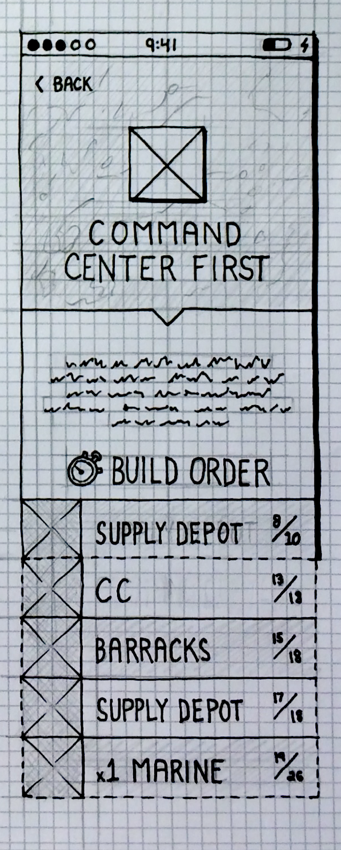 9:41
< BACK
COMMAND
CENTER FIRST
BUILD ORDER
SUPPLY DEPOT 8/10
CC 13/18
BARRACKS 15/18
SUPPLY DEPOT 17/18
x1 MARINE 19/26